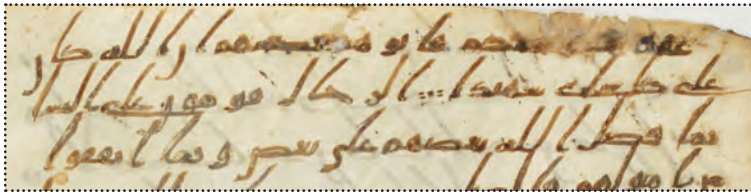 فاتوهم نصيبهم ان الله كان
على كل شاى شهيدا الرجال قومون على النسا
بما فضل الله بعضهم على بعض و بما انفقوا